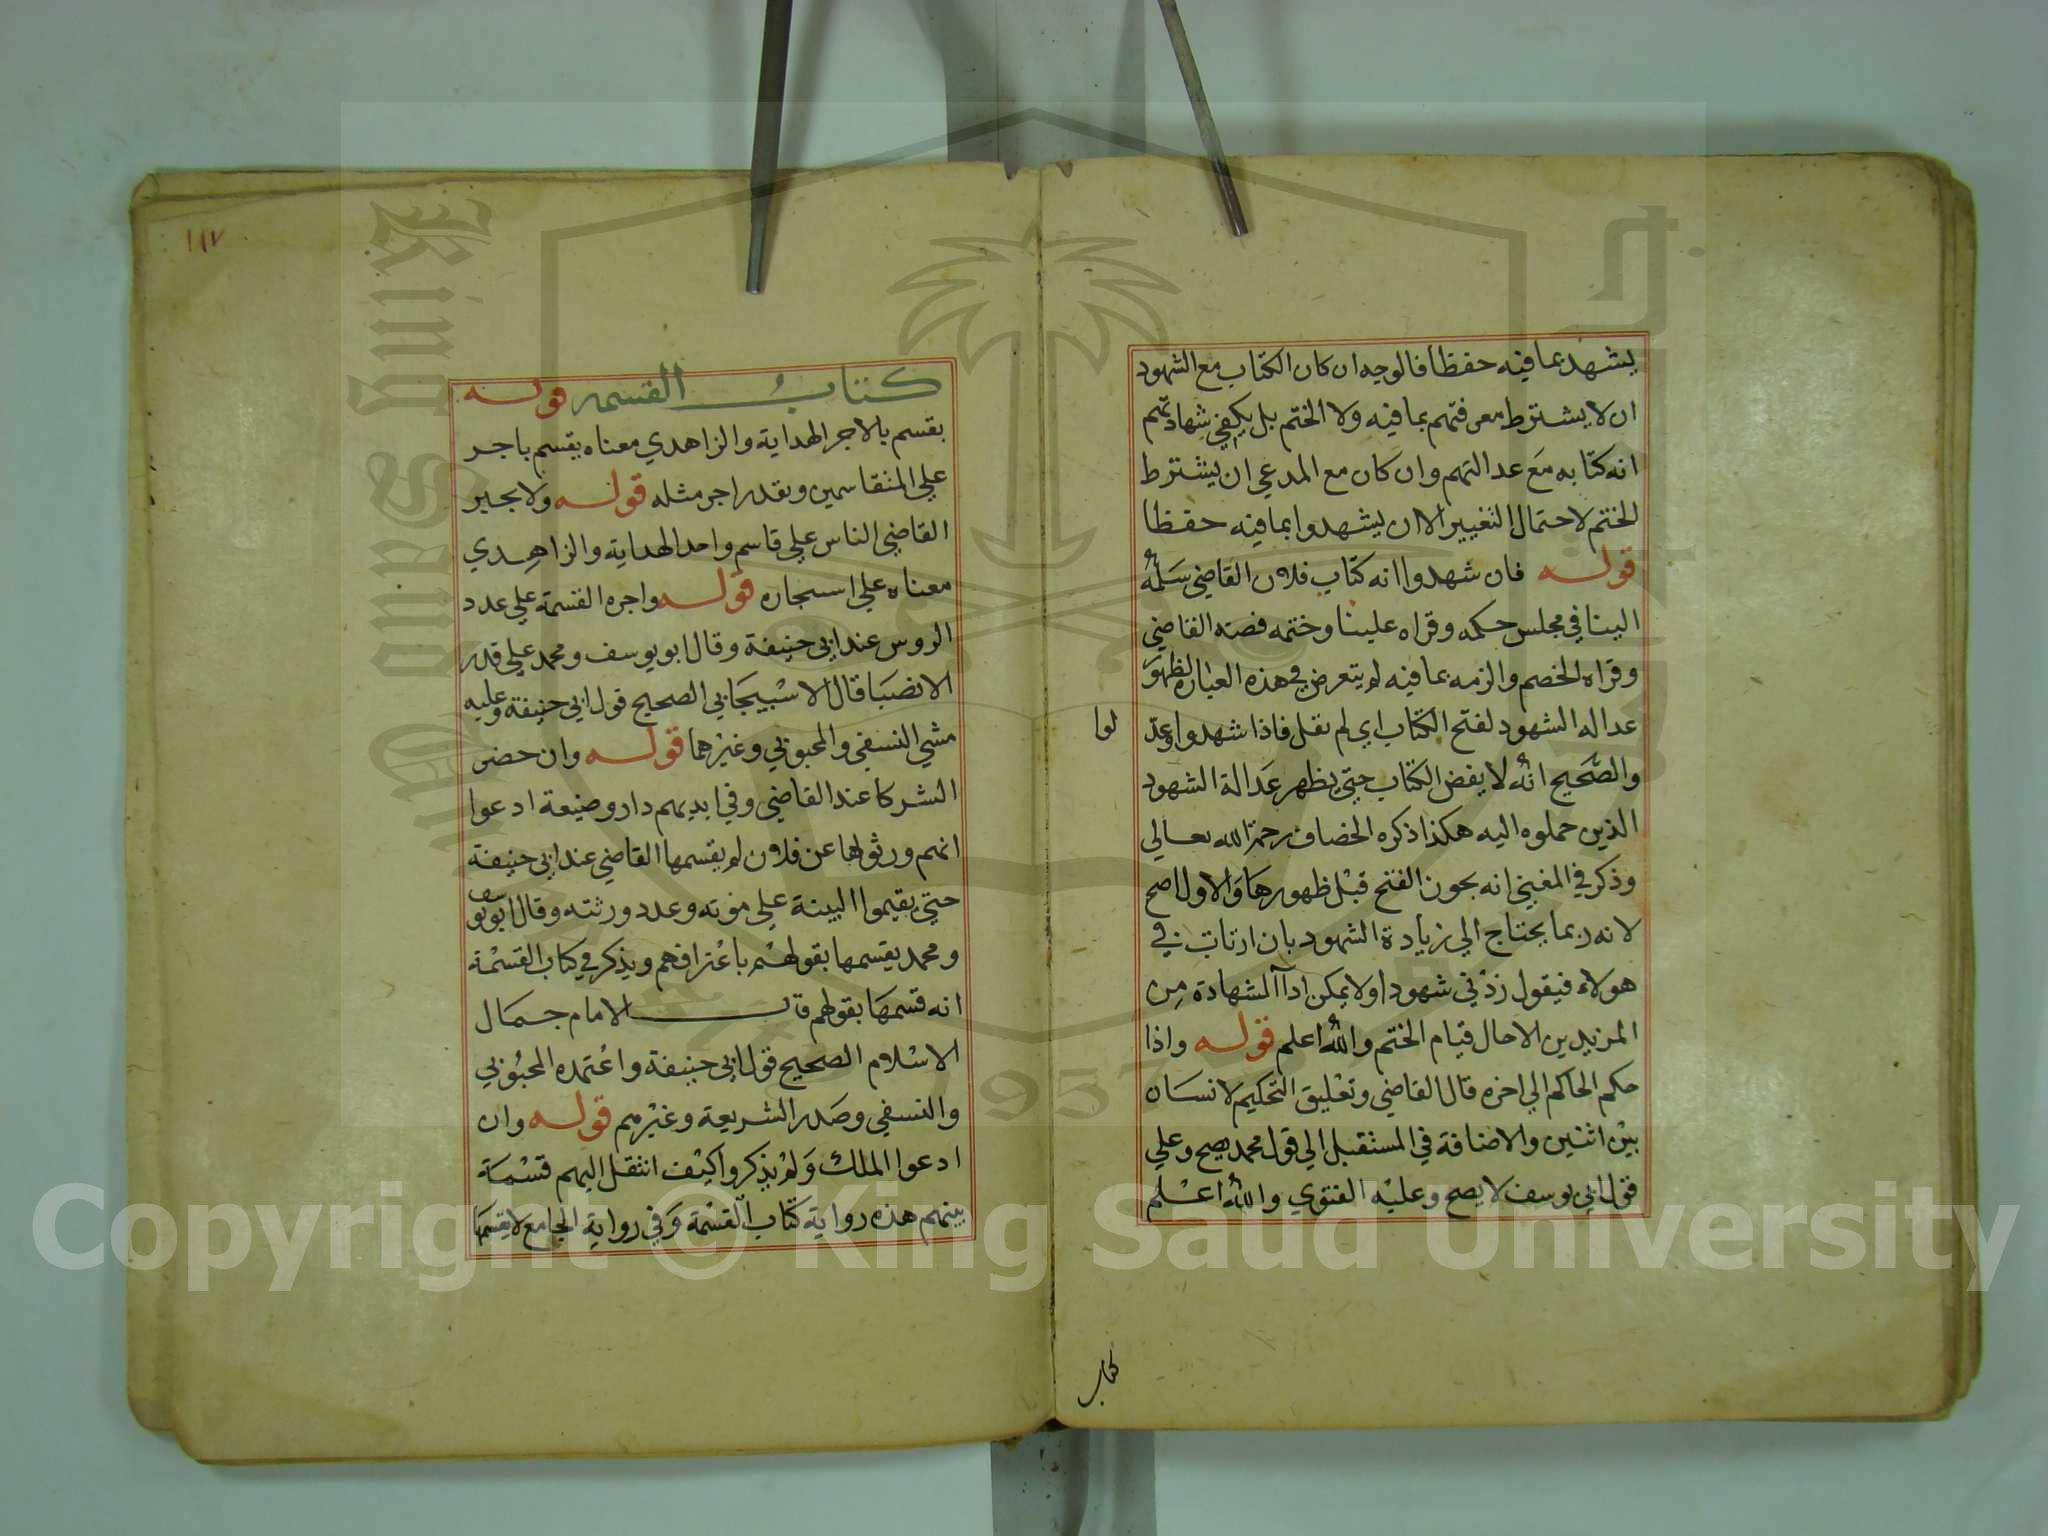 يشهد بما فيه حفظا فالوجه ان كان الكتاب مع الشهود
ان لا يشترط معرفتهم بما فيه ولا الختم بل يكفي شهادتهم
انه كتابه مع عدالتهم وان كان مع المدعي ان يشترط
الختم لاحتمال التغيير الا ان يشهدوا بما فيه حفظا
قوله فان شهدوا انه كتاب فلان القاضي سلمه
الينا في مجلس حكمه وقراه علينا وختمه فضه القاضي
وقراه الخصم والزمه بما فيه لم يتعرض في هذه العبارة لظهور
عدالة الشهود لفتح الكتاب اي لم يقل فاذا شهدوا وعد
لوا
والصحيح انه لا يفض الكتاب حتي يظهر عدالة الشهود
الذين حملوه اليه هكذا ذكره الخصاف رحمة الله تعالي
وذكر في المغني انه يجوز الفتح قبل ظهورها والاول اصح
لانه ربما يحتاج الي زيادة الشهود بان ارتاب في
هولاء فيقول زدني شهودا ولا يمكن ادآ الشهادة من
المزيدين الا حال قيام الختم والله اعلم قوله واذا
حكم الحاكم الي اخره قال القاضي وتعليق التحكيم لانسان
بين اثنين والاضافة في المستقبل الي قول محمد يصح وعلي
قول ابي يوسف لا يصح وعليه الفتوي والله اعلم
كتاب
١١٧
كتاب القسمة قوله
يقسم بالاجر الهداية والزاهدي معناه يقسم باجر
علي المتقاسمين ويقدر اجر مثله قوله ولا يجبر
القاضي الناس علي قاسم واحد الهداية والزاهدي
معناه علي استجاره قوله واجره القسمة علي عدد
الروس عند ابي حنيفة وقال ابو يوسف ومحمد علي قدر
الانصبا قال الاسبيجابي الصحيح قول ابي حنيفة وعليه
مشي النسفي والمحبوبي وغيرهما قوله وان حضر
الشركا عند القاضي وفي ايديهم دار وضيعة ادعوا
انهم ورثوها عن فلان لم يقسمها القاضي عند ابي حنيفة
حتي يقيموا البينة علي موته وعدد ورثته وقال ابو يوسف
ومحمد يقسمها بقولهم باعترافهم ويذكر في كتاب القسمة
انه قسمها بقولهم قال الامام جمال
الاسلام الصحيح قول ابي حنيفة واعتمده المحبوبي
والنسفي وصدر الشريعة وغيرهم قوله وان
ادعوا الملك ولم يذكروا كيف انتقل اليهم قسمة
بينهم هذه رواية كتاب القسمة وفي رواية الجامع لا يقسمها
King Saud University
1957
Copyright © King Saud University